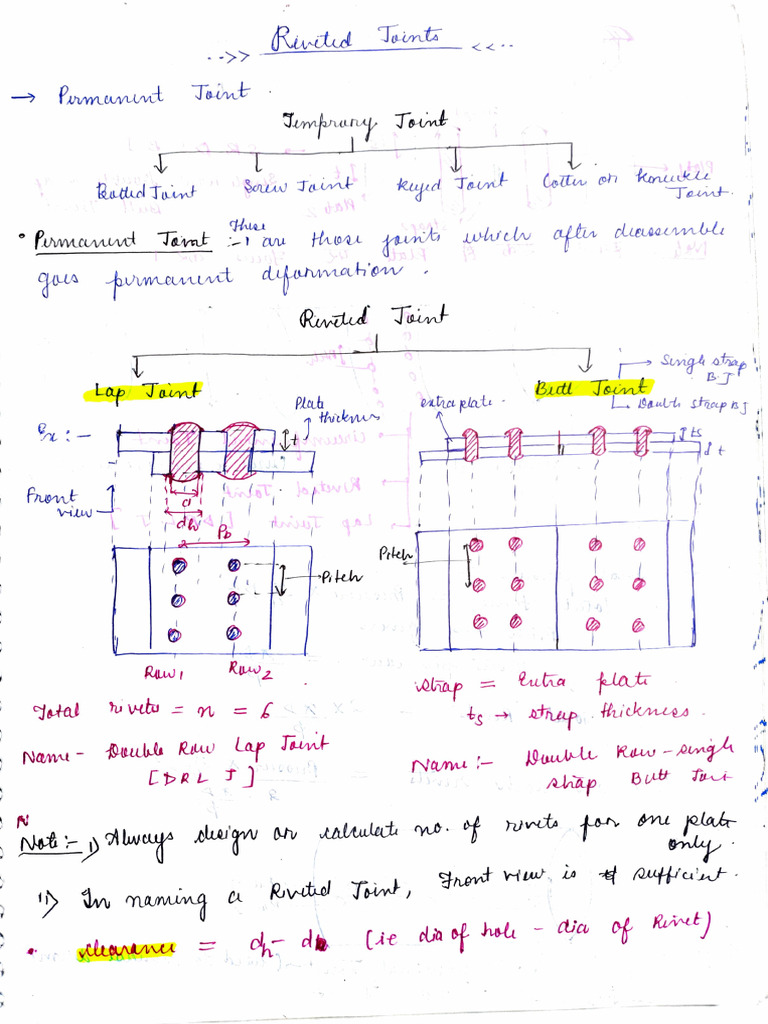 Riveted Joints
→ Permanent Joint.
Temprary Joint
Bolted Joint
Screw Joint
Keyed Joint
Cotter or Knuckle
Joint.
These
• Permanent Joint :- are those joints which after deassemble
goes permanent deformation.
Riveted Joint
Lap Joint
Butt Joint
Single strap
B.J
Double strap BJ
Ex :-
Plate
thickness
t
extra plate
ts
t
Front
view
d
dh
Pb
Pitch
Pitch
Row 1
Row 2
Total rivets = n = 6
Name - Double Row Lap Joint
[DRL J]
strap = Extra plate
ts → strap thickness.
Name:- Double Row-single
strap Butt Joit
Note:- i) Always design or calculate no. of rivets for one plate
only.
ii) In naming a Riveted Joint, Front view is sufficient.
• clearance = dh - d (ie dia of hole - dia of Rivet)